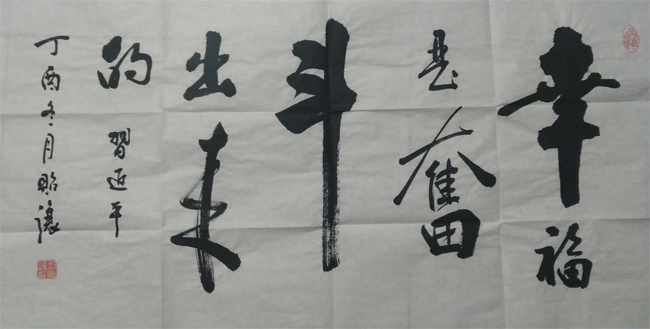 幸福
是奮
斗
出来
的 習近平
丁酉冬月昭讓